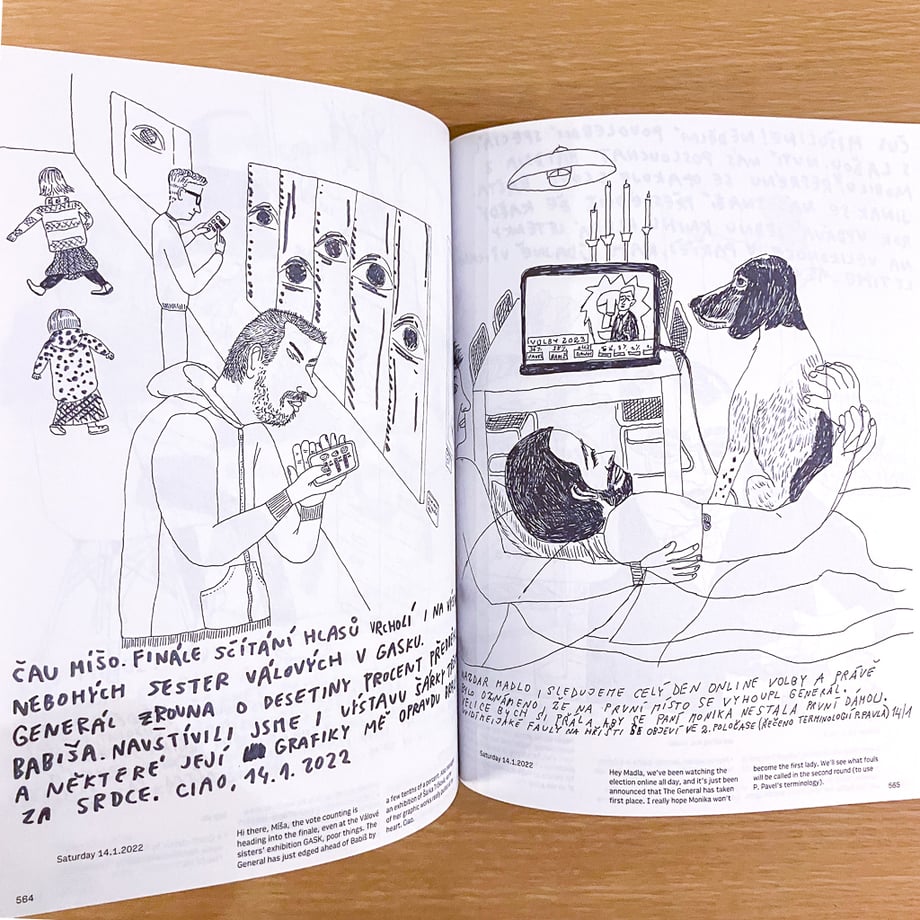 ČAU MÍŠO. FINÁLE SČÍTÁNÍ HLASŮ VRCHOLÍ I NA
NEBOHÝCH SESTER VÁLOVÝCH V GASKU.
GENERÁL ZROVNA O DESETINY PROCENT
BABIŠA. NAVŠTÍVILI JSME I VÝSTAVU ŠÁRKY
A NĚKTERÉ JEJÍ GRAFIKY MĚ OPRAVDU
ZA SRDCE. CIAO, 14.1.2022
Saturday 14.1.2022
Hi there, Míša, the vote counting is
heading into the finale, even at the Válové
sisters' exhibition GASK, poor things. The
General has just edged ahead of Babiš by
a few tenths of a percent.
an exhibition of Šárka
of her graphic works really
heart. Ciao.
564
VOLBY 2023
NAZDAR MADLO, SLEDUJEME CELÝ DEN ONLINE VOLBY A PRÁVĚ
BYLO OZNÁMENO, ŽE NA PRVNÍ MÍSTO SE VYHOUPL GENERÁL.
VELICE BYCH SI PŘÁLA, ABY SE PANÍ MONIKA NESTALA PRVNÍ DÁMOU.
JAKÉ FAULY NA HŘIŠTI SE OBJEVÍ VE 2. POLOČASE (ŘEČENO TERMINOLOGIÍ P. PAVLA) 14/1
Saturday 14.1.2022
Hey Madla, we've been watching the
election online all day, and it's just been
announced that The General has taken
first place. I really hope Monika won't
become the first lady. We'll see what fouls
will be called in the second round (to use
P. Pavel's terminology).
565